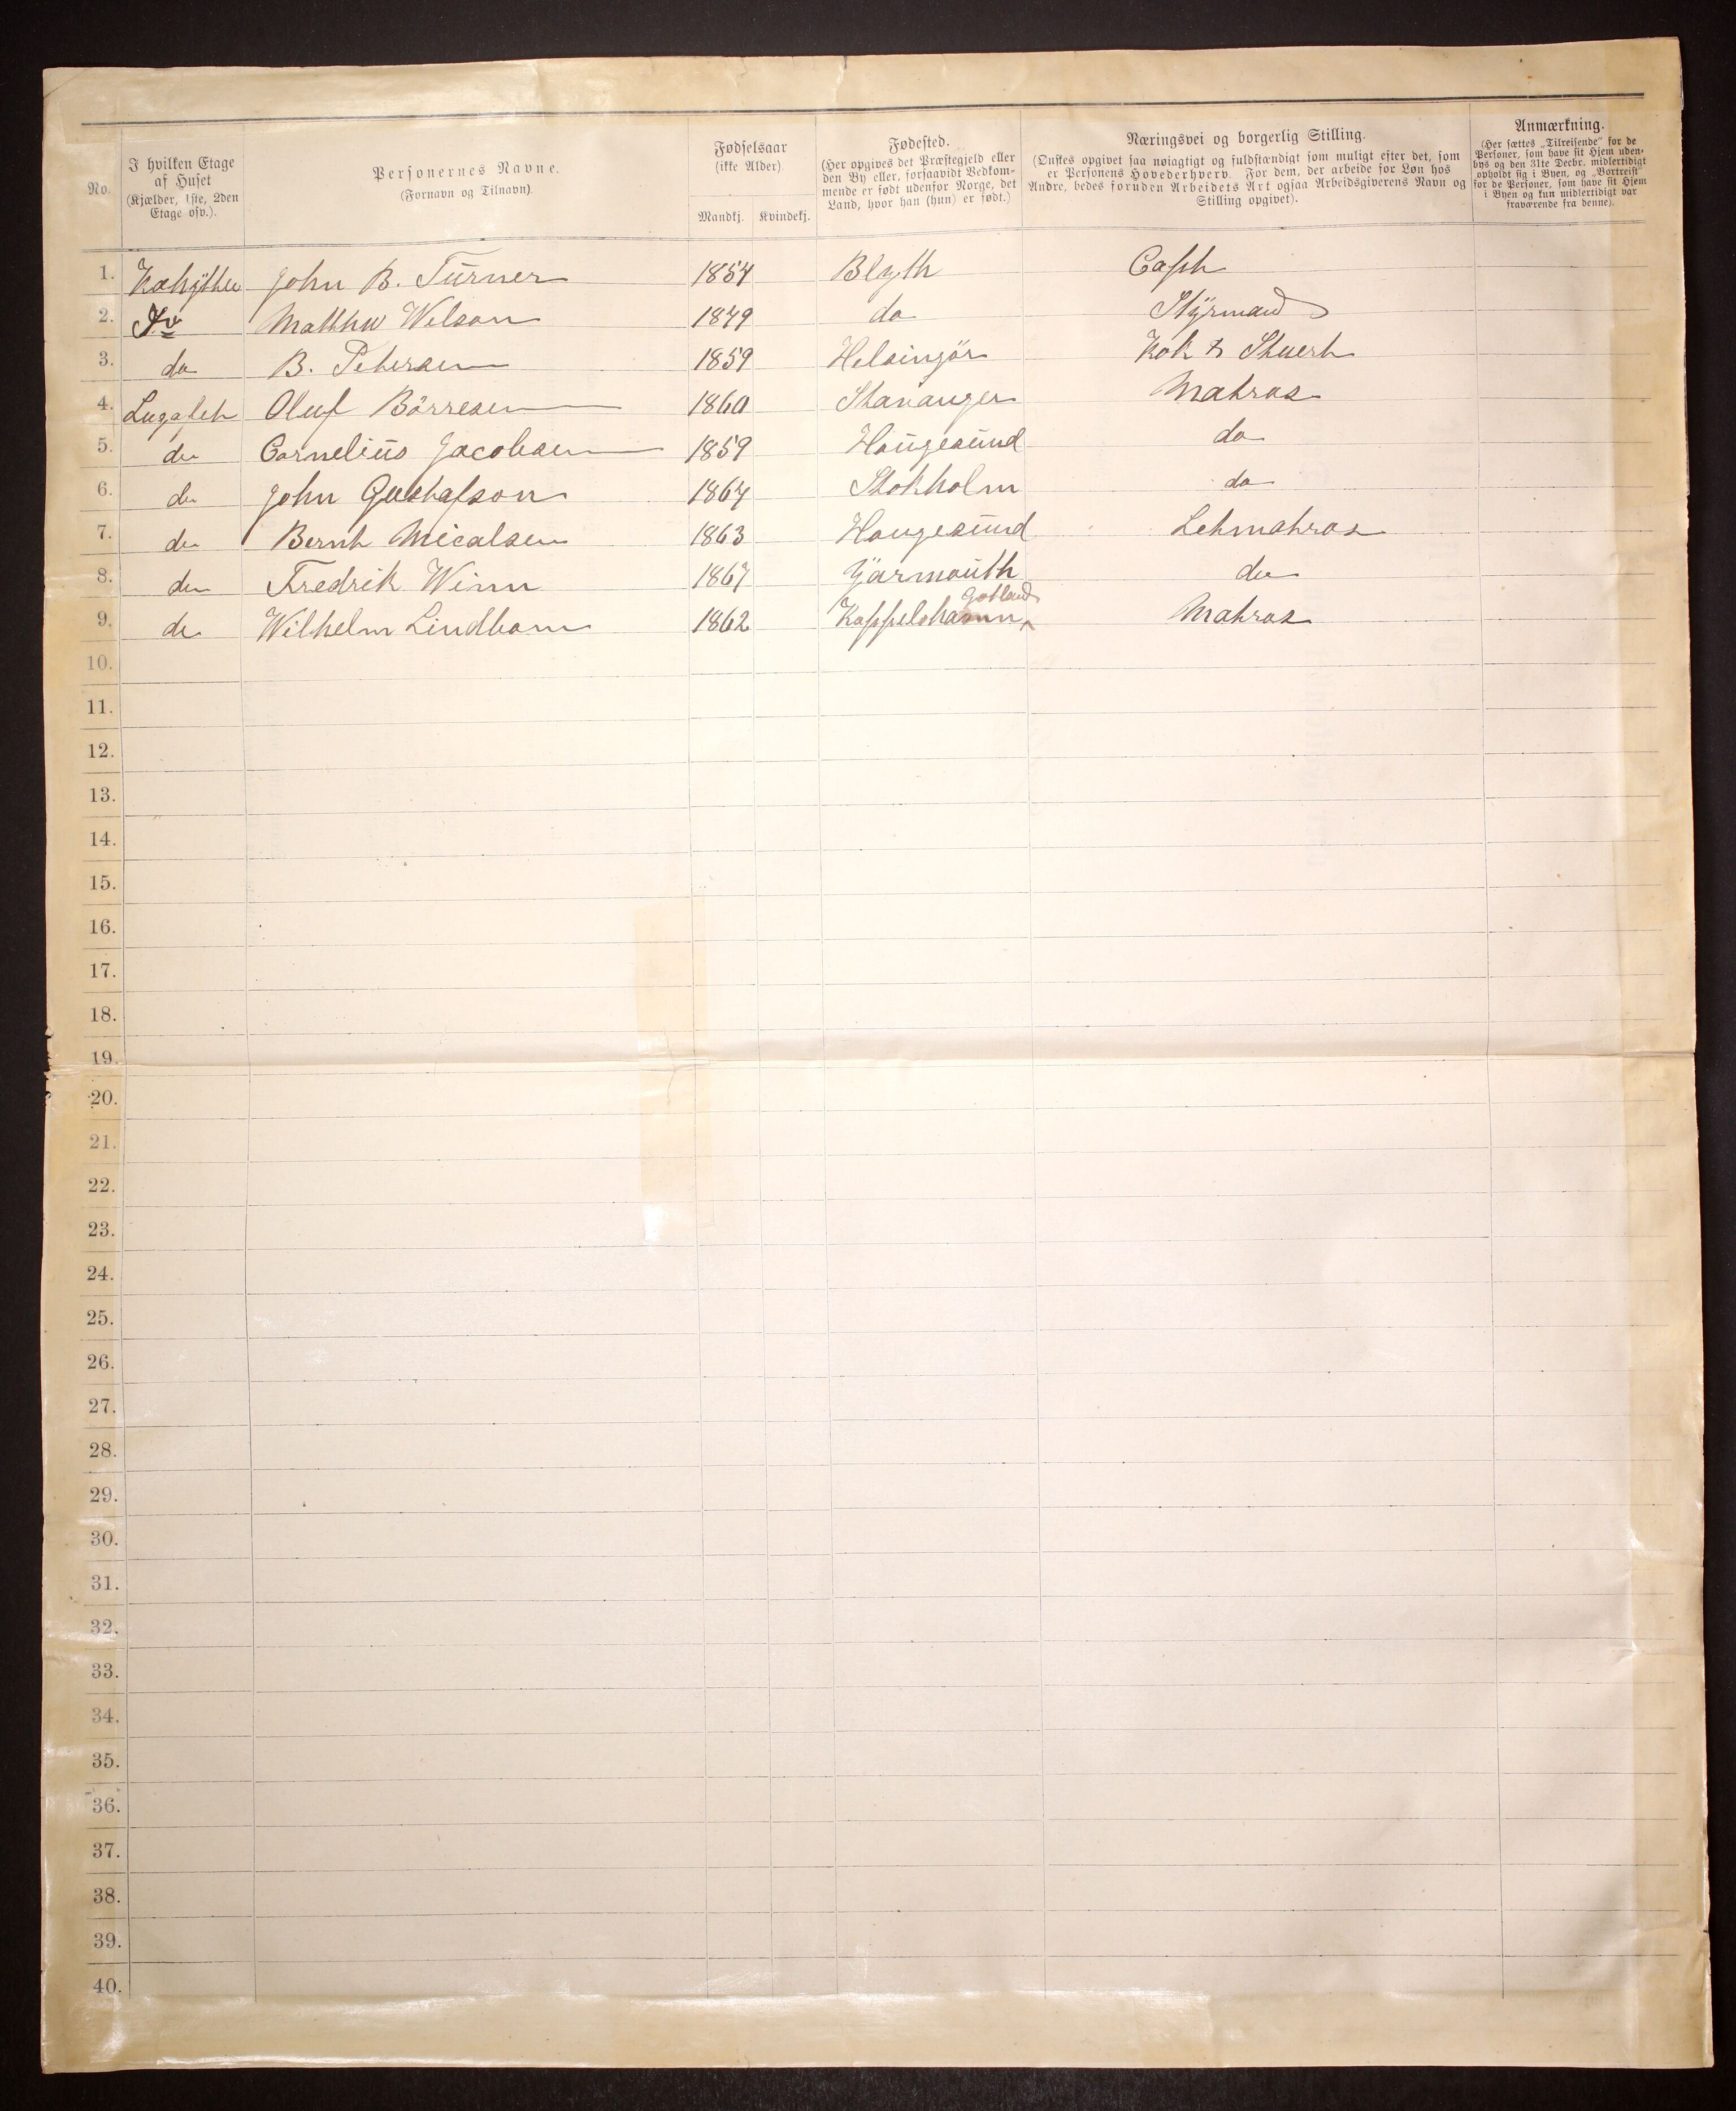 No.
I hvilken Etage
af Huset
(Kjælder, 1ste, 2den
Etage osv.).
Personernes Navne.
(Fornavn og Tilnavn).
Fødselsaar
(ikke Alder)
Mandkj. Kvindekj.
Fødested.
(Her opgives det Præstegjeld eller
den By eller, forsaavidt Vedkom-
mende er født udenfor Norge, det
Land, hvor han (hun) er født.)
Næringsvei og borgerlig Stilling.
(Ønskes opgivet saa nøiagtigt og fuldstændigt som muligt efter det, som
er Personens Hovederhverv. For dem, der arbeide for Løn hos
Andre, bedes foruden Arbeidets Art ogsaa Arbeidsgiverens Navn og
Stilling opgivet).
Anmærkning.
(Her sættes „Tilreisende“ for de
Personer, som have sit Hjem uden-
bys og den 31te Decbr. midlertidigt
opholdt sig i Byen, og „Bortreist“
for de Personer, som have sit Hjem
i Byen og kun midlertidigt var
fraværende fra denne).
1. Kahytten John B. Turner 1854 Blyth Capt
2. Do Matthw Wilson 1849 do Styrmand
3. do B. Petersen 1859 Helsingör Kok & Stuert
4. Lugafet Oluf Börresen 1860 Stavanger Matros
5. do Cornelius Jacobsen 1859 Haugesund do
6. do John Gustafson 1864 Stokholm do
7. do Bernt Micalsen 1863 Haugesund Letmatros
8. do Fredrik Winn 1867 Yarmouth do
Gotland
9. do Wilhelm Lindbom 1862 Kappelshamn Matros
10.
11.
12.
13.
14.
15.
16.
17.
18.
19.
20.
21.
22.
23.
24.
25.
26.
27.
28.
29.
30.
31.
32.
33.
34.
35.
36.
37.
38.
39.
40.